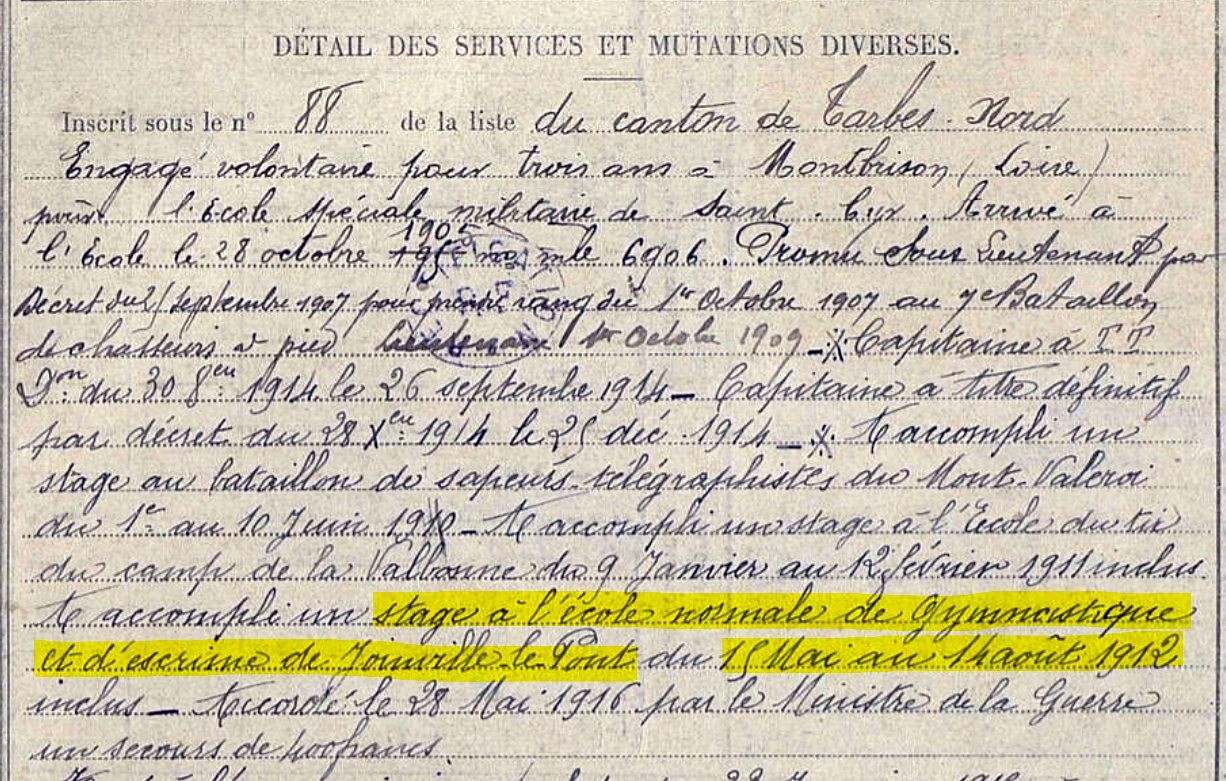 DÉTAIL DES SERVICES ET MUTATIONS DIVERSES.
Inscrit sous le nº 88 de la liste du canton de Tarbes-Nord
Engagé volontaire pour trois ans à Montbrison (Loire)
pour l'École spéciale militaire de Saint-Cyr. Arrivé à
l'École le 28 octobre 1905 nº mle 6906. Promu Sous Lieutenant par
Décret du 21 septembre 1907 pour prendre rang du 1er Octobre 1907 au 7e Bataillon
de chasseurs à pied Lieutenant 1er Octobre 1909 _ Capitaine à TT
Don du 30 8bre 1914 le 26 septembre 1914 _ Capitaine à titre définitif
par décret du 28 Xbre 1914 le 25 déc. 1914 _ A accompli un
stage au bataillon de sapeurs-télégraphistes du Mont-Valeroi
du 1er au 10 Juin 1910 _ A accompli un stage à l'École du tir
du camp de la Valbonne du 9 Janvier au 12 février 1911 inclus.
A accompli un stage à l'école normale de Gymnastique
et d'escrime de Joinville-le-Pont du 15 Mai au 14 août 1912
inclus _ Accordé le 28 Mai 1916 par le Ministre de la Guerre
un secours de 400 francs.